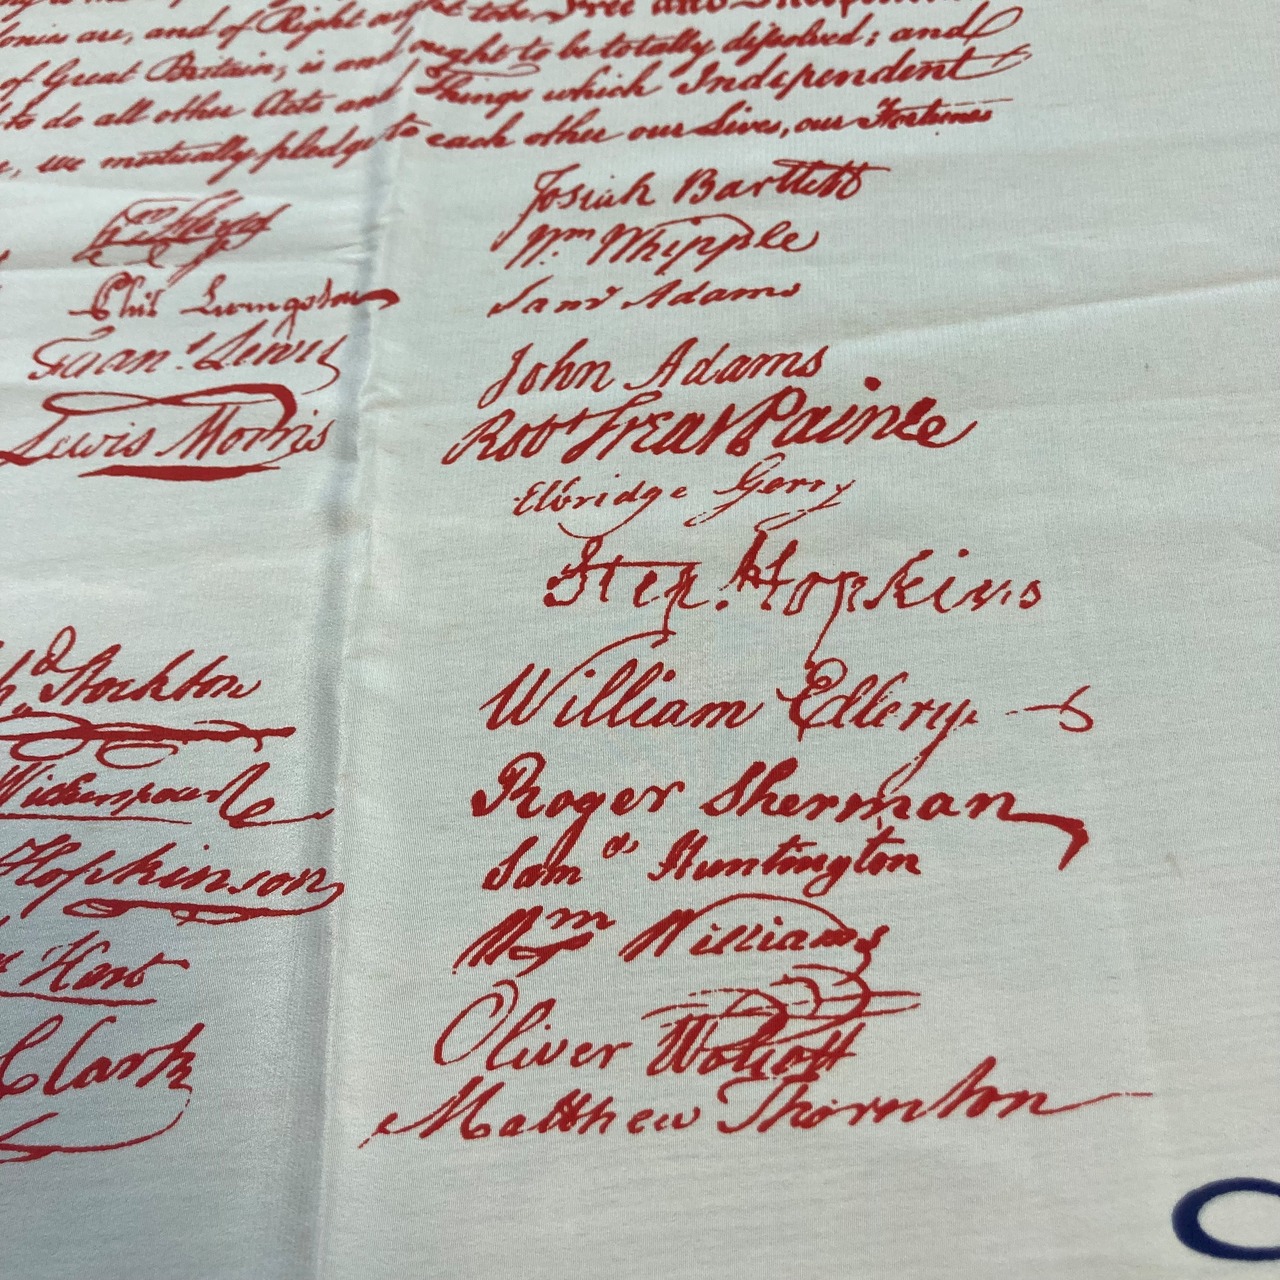 Free and Independent
onies are, and of Right ought to be Free and Independen
of Great Britain, is and ought to be totally dissolved; and
to do all other Acts and Things which Independent
, we mutually pledge to each other our Lives, our Fortunes
Phil Livingston
Fran.s Lewis
Lewis Morris
d Stockton
Hopkinson
Hart
Clark
Josiah Bartlett
Wm Whipple
Saml Adams
John Adams
Robt Treat Paine
Elbridge Gerry
Step. Hopkins
William Ellery
Roger Sherman
Samel Huntington
Wm Williams
Oliver Wolcott
Matthew Thornton